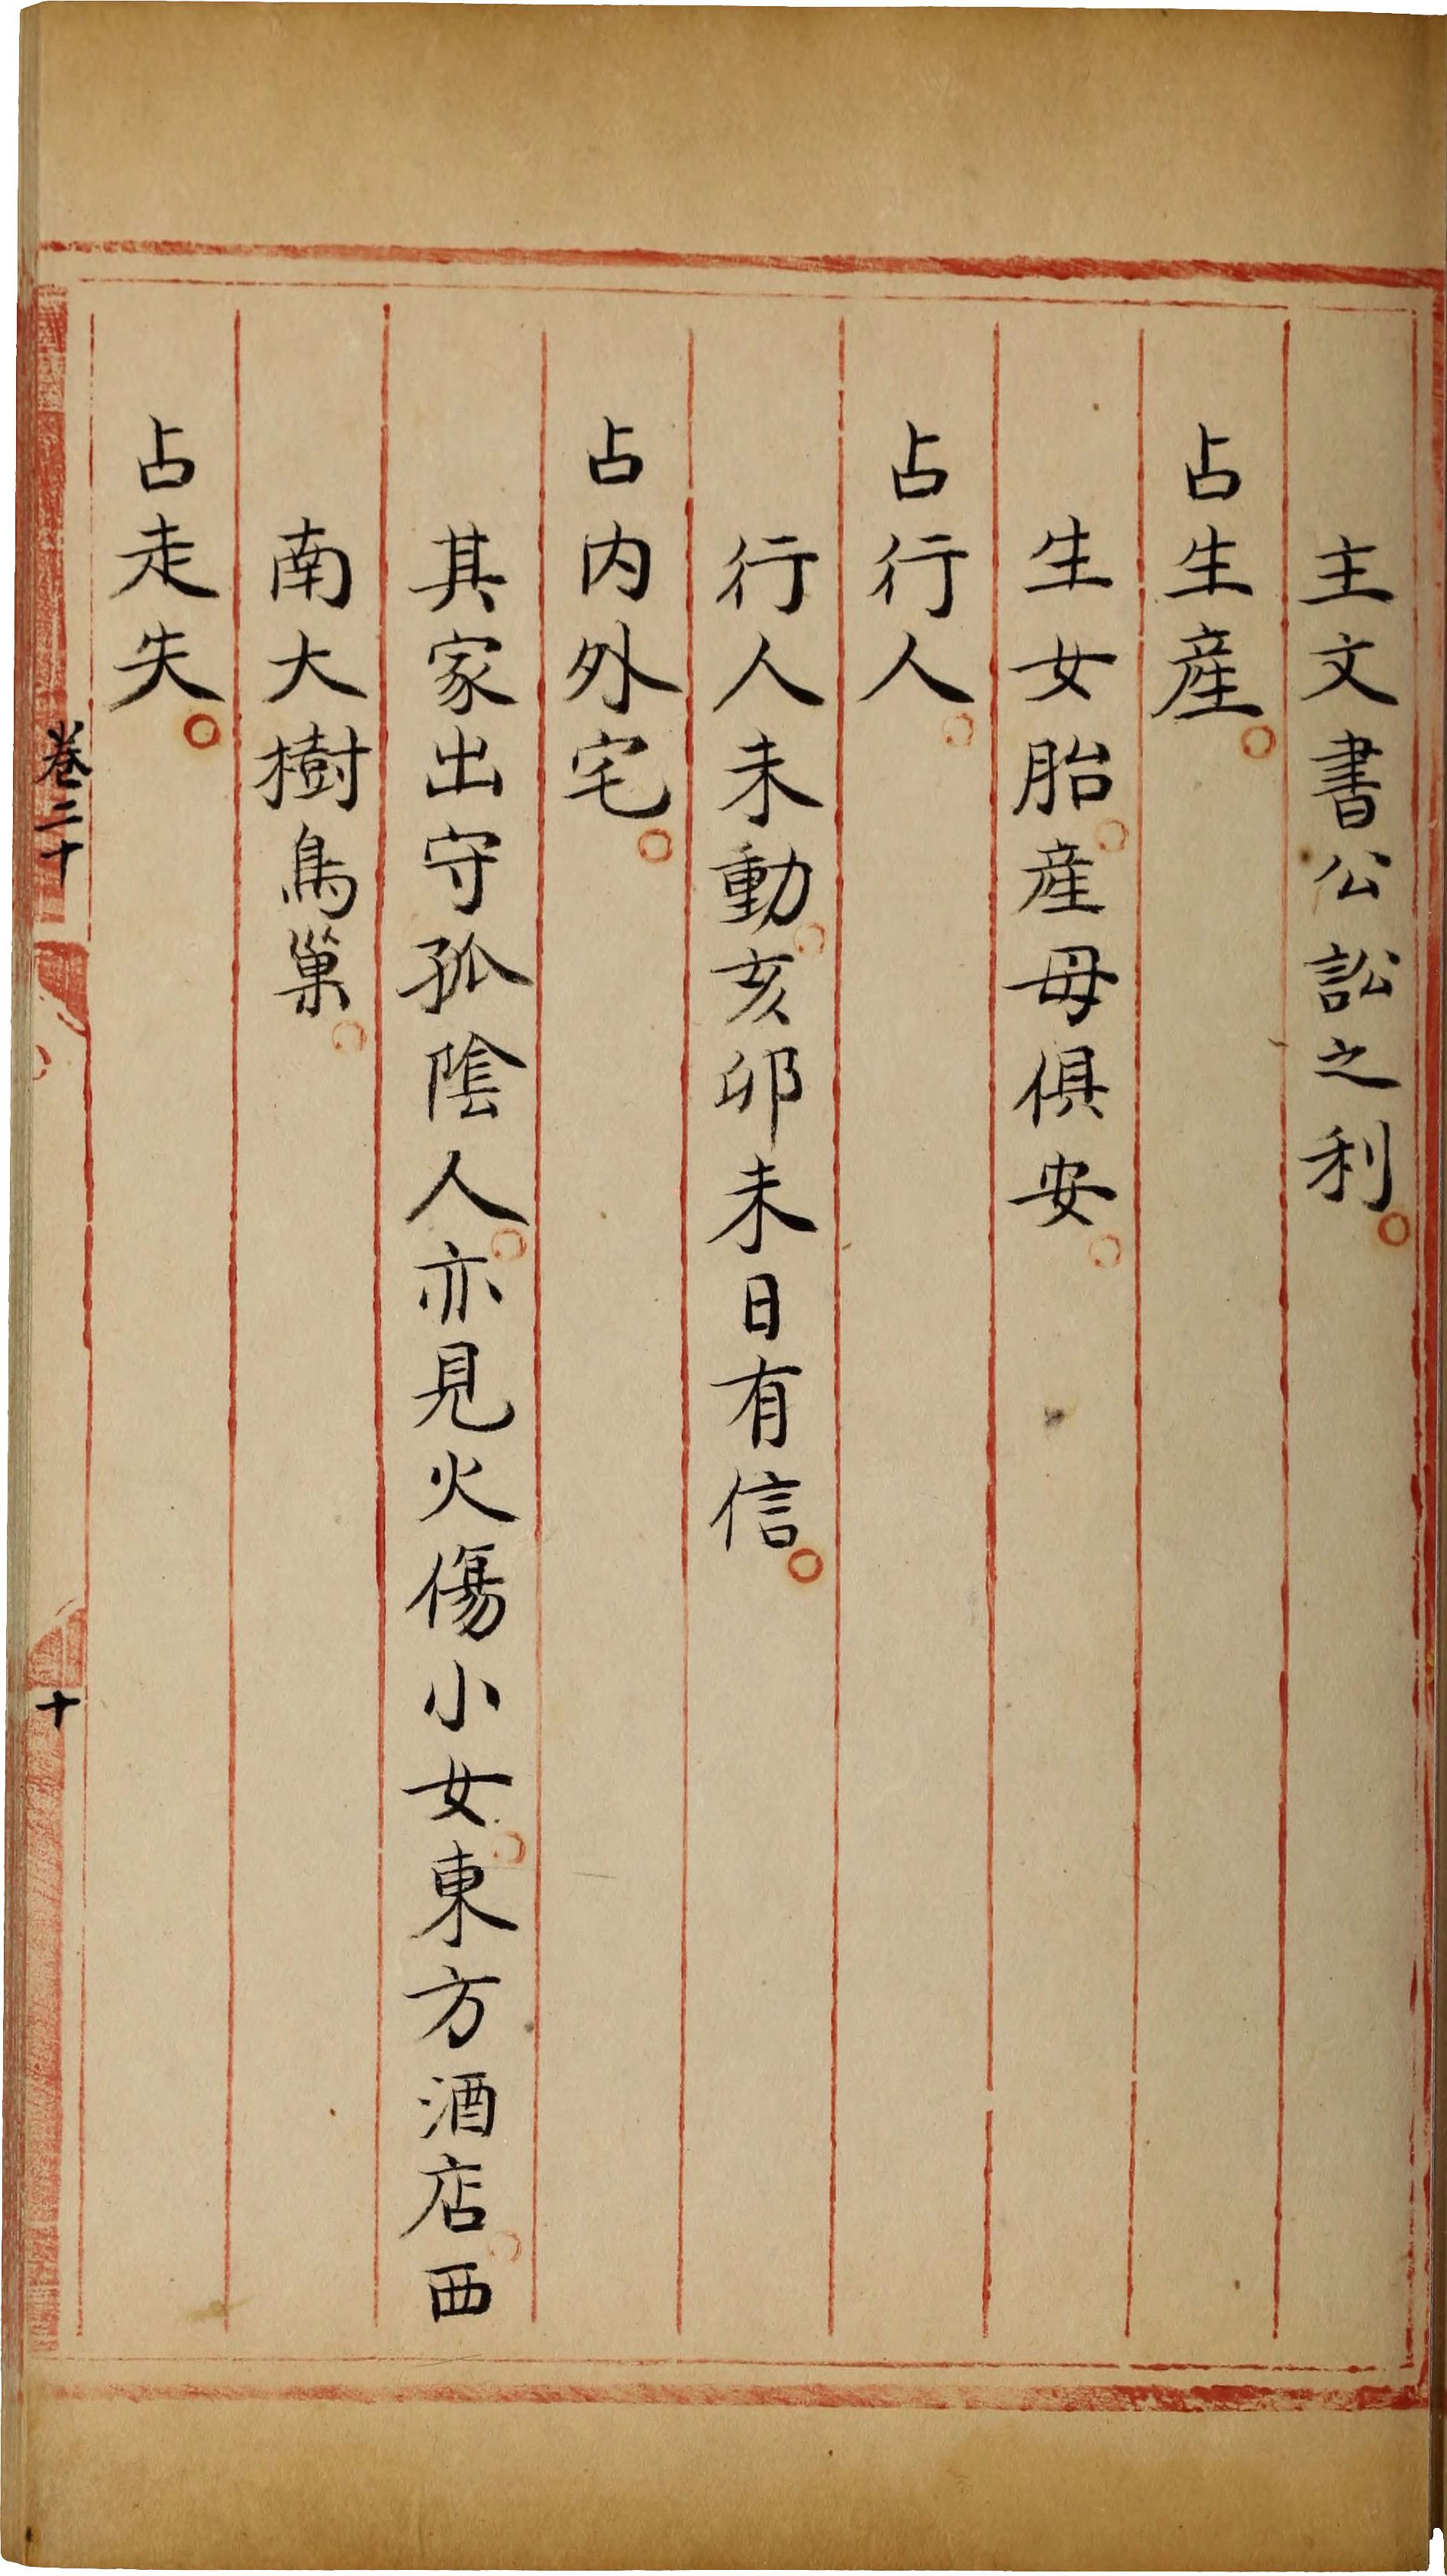 主文書公訟之利。
占生產。
生女胎。產母俱安。
占行人。
行人未動。亥卯未日有信。
占内外宅。
其家出守孤陰人。亦見火傷小女。東方酒店。西
南大樹鳥巢。
占走失。
卷二十
十